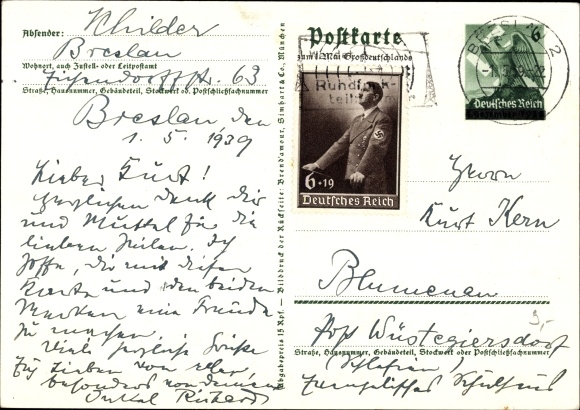 Absender: Schilder
Breslau
Wohnort, auch Zustell- oder Leitpostamt
63
Straße, Hausnummer, Gebäudeteil, Stockwerk od. Postschließfachnummer
Breslau den
1. 5. 1939
Lieber Kurt!
Herzlichen Dank dir
und Muttel für die
lieben Zeilen. Ich
hoffe, dir mit dieser
Karte und den beiden
Marken eine Freude
zu machen.
Viele herzliche Grüße
Euch Lieben von allen,
besonders von deinem
Onkel Richard
Abgabepreis 15 Rpf. — Bilddruck der Rückseite: Brend'amour, Simhart & Co., München
Postkarte
zum 1. Mai Großdeutschlands
Rundfunk-
6+19
Deutsches Reich
BRESLAU 2
6
Deutsches Reich
Herrn
Kurt Kern
Blumenau
Post Wüstegiersdorf
Straße, Hausnummer, Gebäudeteil, Stockwerk oder Postschließfachnummer
(Schlesien)
Evangelisches Schulhaus